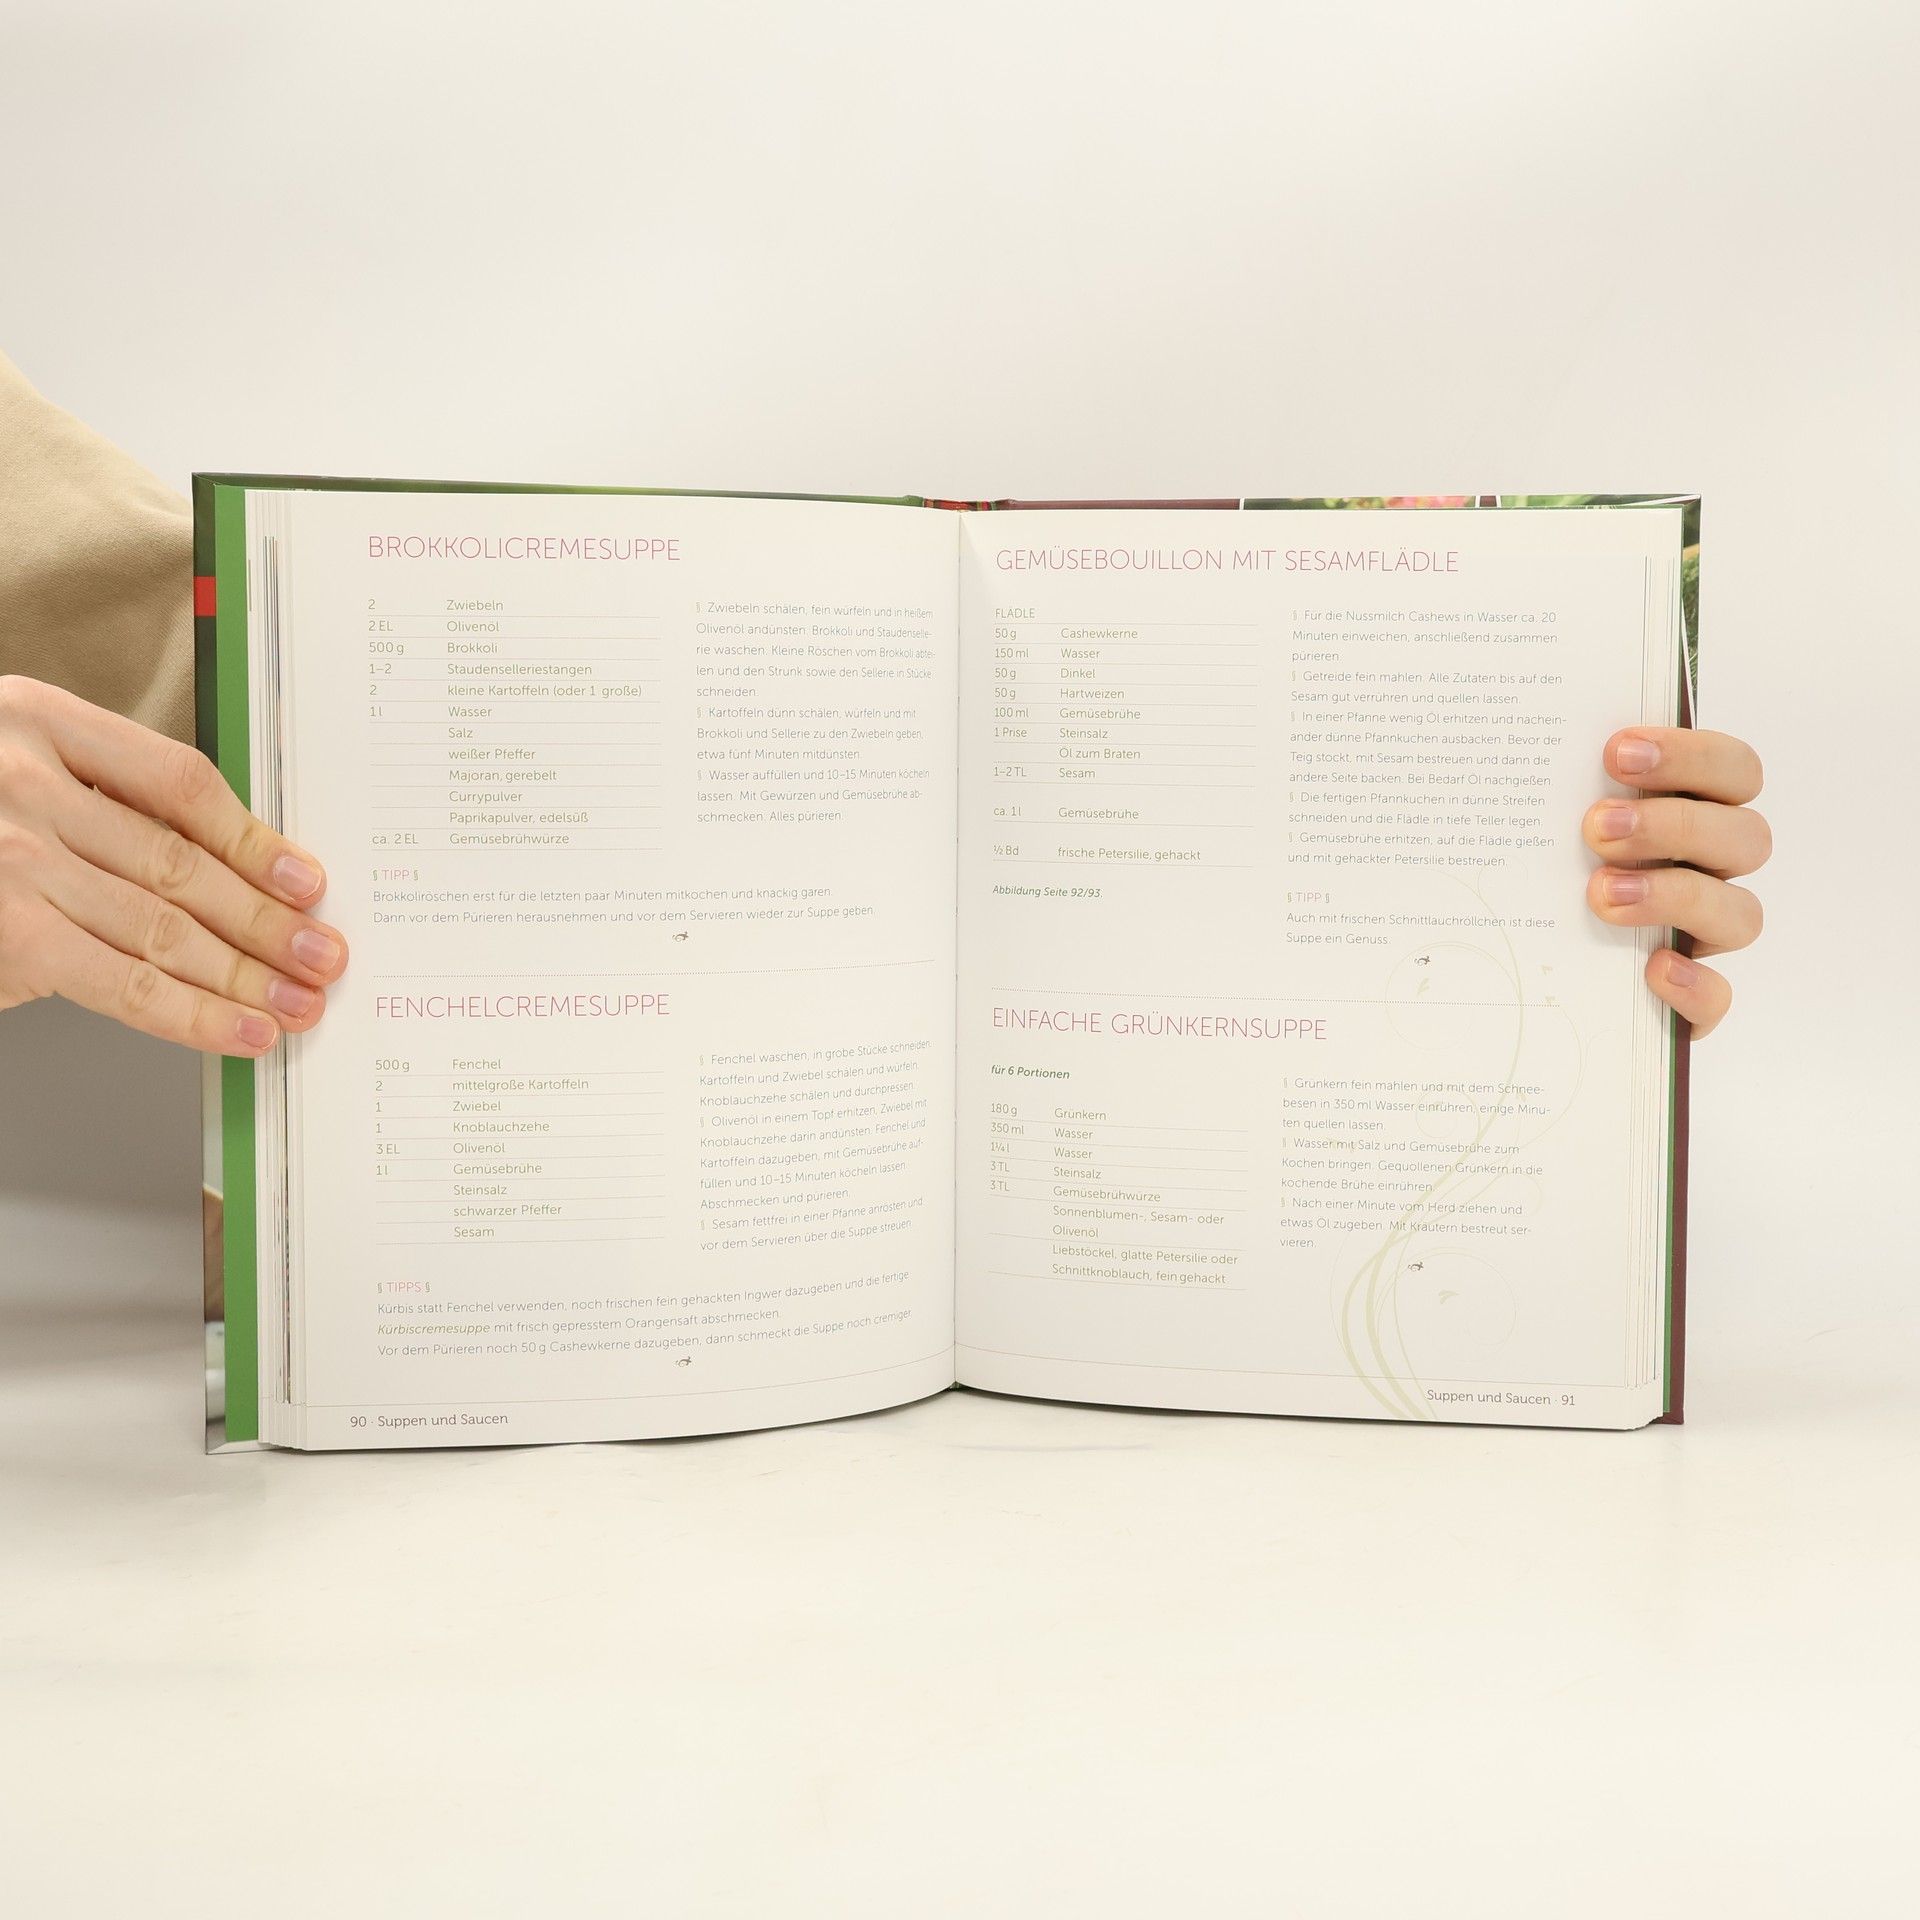 BROKKOLICREMESUPPE
2 Zwiebeln
2 EL Olivenöl
500 g Brokkoli
1–2 Staudenselleriestangen
2 kleine Kartoffeln (oder 1 große)
1 l Wasser
Salz
weißer Pfeffer
Majoran, gerebelt
Currypulver
Paprikapulver, edelsüß
ca. 2 EL Gemüsebrühwürze
§ Zwiebeln schälen, fein würfeln und in heißem
Olivenöl andünsten. Brokkoli und Staudenselle-
rie waschen. Kleine Röschen vom Brokkoli abtei-
len und den Strunk sowie den Sellerie in Stücke
schneiden.
§ Kartoffeln dünn schälen, würfeln und mit
Brokkoli und Sellerie zu den Zwiebeln geben,
etwa fünf Minuten mitdünsten.
§ Wasser auffüllen und 10–15 Minuten köcheln
lassen. Mit Gewürzen und Gemüsebrühe ab-
schmecken. Alles pürieren.
§ TIPP §
Brokkoliröschen erst für die letzten paar Minuten mitkochen und knackig garen.
Dann vor dem Pürieren herausnehmen und vor dem Servieren wieder zur Suppe geben.
FENCHELCREMESUPPE
500 g Fenchel
2 mittelgroße Kartoffeln
1 Zwiebel
1 Knoblauchzehe
3 EL Olivenöl
1 l Gemüsebrühe
Steinsalz
schwarzer Pfeffer
Sesam
§ Fenchel waschen, in grobe Stücke schneiden.
Kartoffeln und Zwiebel schälen und würfeln.
Knoblauchzehe schälen und durchpressen.
§ Olivenöl in einem Topf erhitzen, Zwiebel mit
Knoblauchzehe darin andünsten. Fenchel und
Kartoffeln dazugeben, mit Gemüsebrühe auf-
füllen und 10–15 Minuten köcheln lassen.
Abschmecken und pürieren.
§ Sesam fettfrei in einer Pfanne anrösten und
vor dem Servieren über die Suppe streuen.
§ TIPPS §
Kürbis statt Fenchel verwenden, noch frischen fein gehackten Ingwer dazugeben und die fertige
Kürbiscremesuppe mit frisch gepresstem Orangensaft abschmecken.
Vor dem Pürieren noch 50 g Cashewkerne dazugeben, dann schmeckt die Suppe noch cremiger.
90 · Suppen und Saucen
GEMÜSEBOUILLON MIT SESAMFLÄDLE
FLÄDLE
50 g Cashewkerne
150 ml Wasser
50 g Dinkel
50 g Hartweizen
100 ml Gemüsebrühe
1 Prise Steinsalz
Öl zum Braten
1–2 TL Sesam
ca. 1 l Gemüsebrühe
½ Bd frische Petersilie, gehackt
Abbildung Seite 92/93.
§ Für die Nussmilch Cashews in Wasser ca. 20
Minuten einweichen, anschließend zusammen
pürieren.
§ Getreide fein mahlen. Alle Zutaten bis auf den
Sesam gut verrühren und quellen lassen.
§ In einer Pfanne wenig Öl erhitzen und nachein-
ander dünne Pfannkuchen ausbacken. Bevor der
Teig stockt, mit Sesam bestreuen und dann die
andere Seite backen. Bei Bedarf Öl nachgießen.
§ Die fertigen Pfannkuchen in dünne Streifen
schneiden und die Flädle in tiefe Teller legen.
§ Gemüsebrühe erhitzen, auf die Flädle gießen
und mit gehackter Petersilie bestreuen.
§ TIPP §
Auch mit frischen Schnittlauchröllchen ist diese
Suppe ein Genuss.
EINFACHE GRÜNKERNSUPPE
für 6 Portionen
180 g Grünkern
350 ml Wasser
1¼ l Wasser
3 TL Steinsalz
3 TL Gemüsebrühwürze
Sonnenblumen-, Sesam- oder
Olivenöl
Liebstöckel, glatte Petersilie oder
Schnittknoblauch, fein gehackt
§ Grünkern fein mahlen und mit dem Schnee-
besen in 350 ml Wasser einrühren, einige Minu-
ten quellen lassen.
§ Wasser mit Salz und Gemüsebrühe zum
Kochen bringen. Gequollenen Grünkern in die
kochende Brühe einrühren.
§ Nach einer Minute vom Herd ziehen und
etwas Öl zugeben. Mit Kräutern bestreut ser-
vieren.
Suppen und Saucen · 91